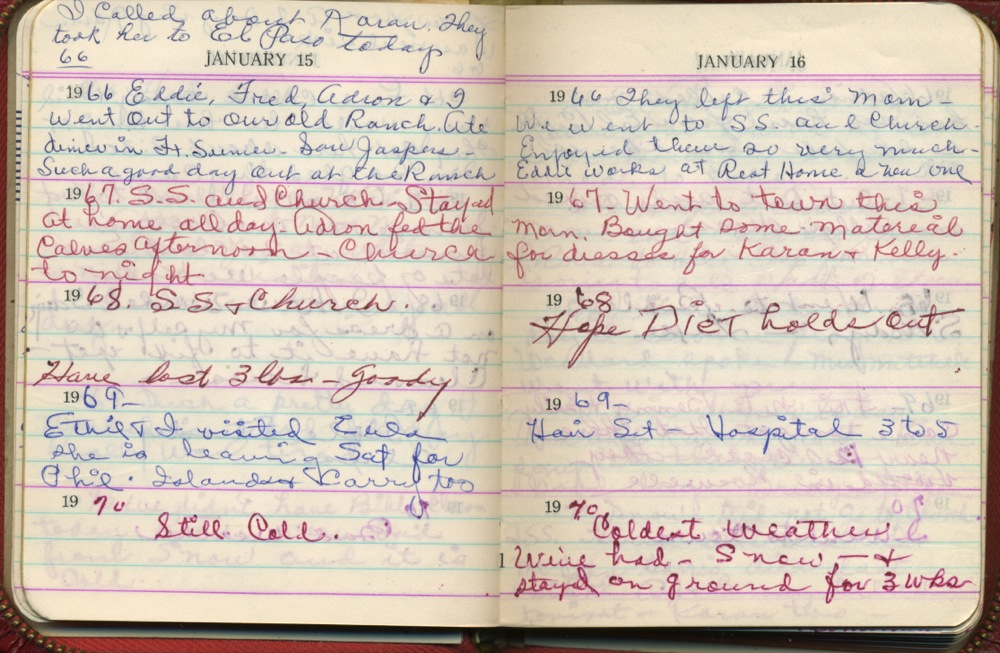 I Called about Karan. They
took her to El Paso today
66
JANUARY 15
1966 Eddie, Fred, Adron & I
went out to our old Ranch. Ate
dinner in Ft. Sumner - Saw Jaspers -
Such a good day out at the Ranch
1967. S.S. and Church - Stayed
at home all day. Adron fed the
Calves afternoon - Church
to night
1968. S.S. & Church.
Have lost 3 lbs - goody
1969 -
Ethel & I visited
she is leaving Sat for
Phil. Islands & Larry too
1970
Still Cold.
JANUARY 16
1966 They left this Morn -
We went to S.S. and Church -
Enjoyed them so very much -
Eddie works at Rest Home a new one
1967. Went to town this
Morn. Bought some material
for dresses for Karan & Kelly.
1968
Hope DIET holds out
1969 -
Hair Set - Hospital 3 to 5
1970 Coldest Weather
We've had - Snow, - &
stayed on ground for 3 wks